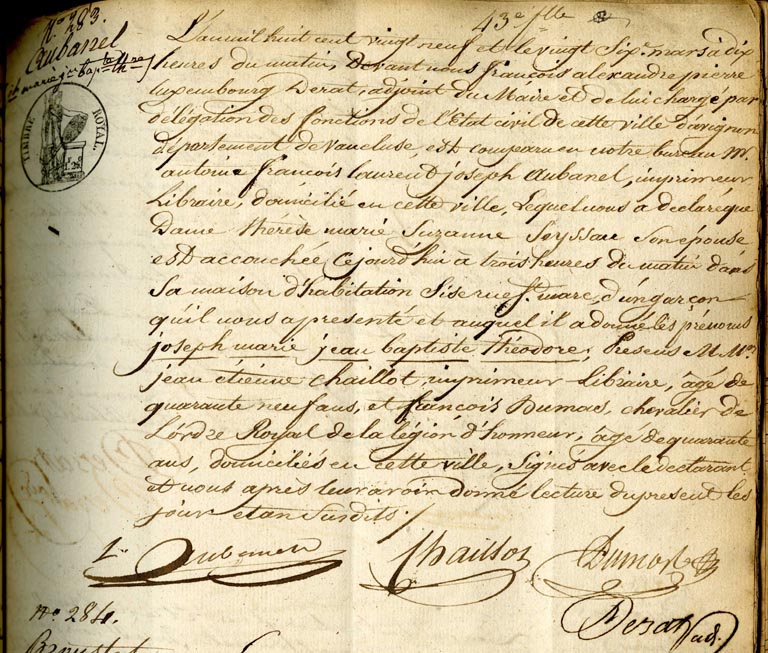 No. 283.
Aubanel
joseph marie jn. Bapte. Thre.
43e flle
TIMBRE ROYAL.
L'an mil huit cent vingt neuf et le vingt Six mars à dix
heures du matin, Devant nous françois alexandre pierre
Luxembourg Derat, adjoint du Maire et de lui chargé par
délégation des fonctions de l'Etat civil de cette ville d'avignon
département de vaucluse, est comparu en notre bureau Mr.
antoine françois laurent joseph Aubanel, imprimeur
Libraire, domicilié en cette ville, Lequel nous a declaré que
Dame thérèse marie Suzanne Seyssau Son épouse
est accouchée cejourd'hui a trois heures du matin dans
Sa maison d'habitation Sise rue St. marc, d'un garçon
qu'il nous a presenté et auquel il a donné les prénoms
joseph marie jean baptiste théodore; Presens M.Mrs.
jean étienne Chaillot, imprimeur Libraire, âgé de
quarante neuf ans, et françois Dumas, chevalier de
L'ordre Royal de la légion d'honneur, âgé de quarante
ans, domiciliés en cette ville, Signés avec le declarant
et nous après leur avoir donné lecture du present les
jour et an Susdits ./
Lt Aubanel Chaillot Dumas
Derat adj.
No. 284.